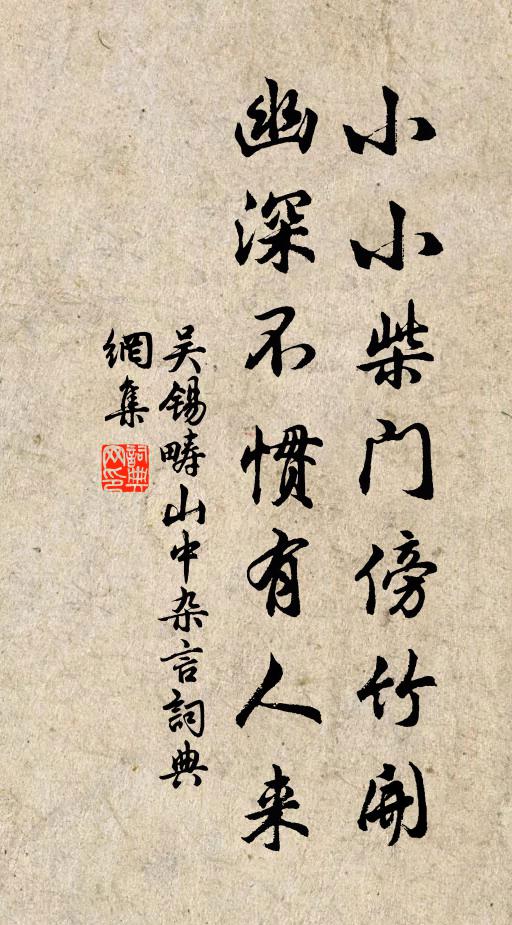 小小柴門傍竹開
幽深不慣有人来
吴锡畴山中杂言詞典
網集
詞典
网印